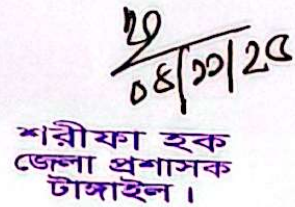 ০৪|১১|২৫
শরীফা হক
জেলা প্রশাসক
টাঙ্গাইল।